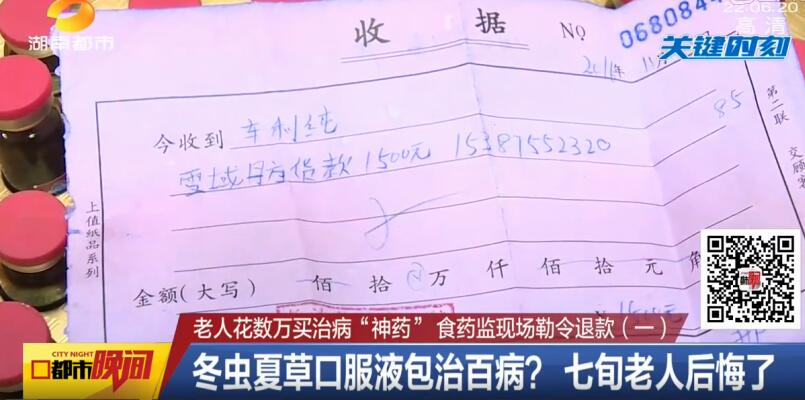 湖南都市
22:06:20
高清
关键时刻
收 据
№ 068084
今收到
货款1500元 15387552320
85
第二联
交顾客
上值纸品系列
金额(大写) 佰 拾 万 仟 佰 拾 元 角
老人花数万买治病“神药” 食药监现场勒令退款(一)
CITY NIGHT
都市晚间
冬虫夏草口服液包治百病? 七旬老人后悔了